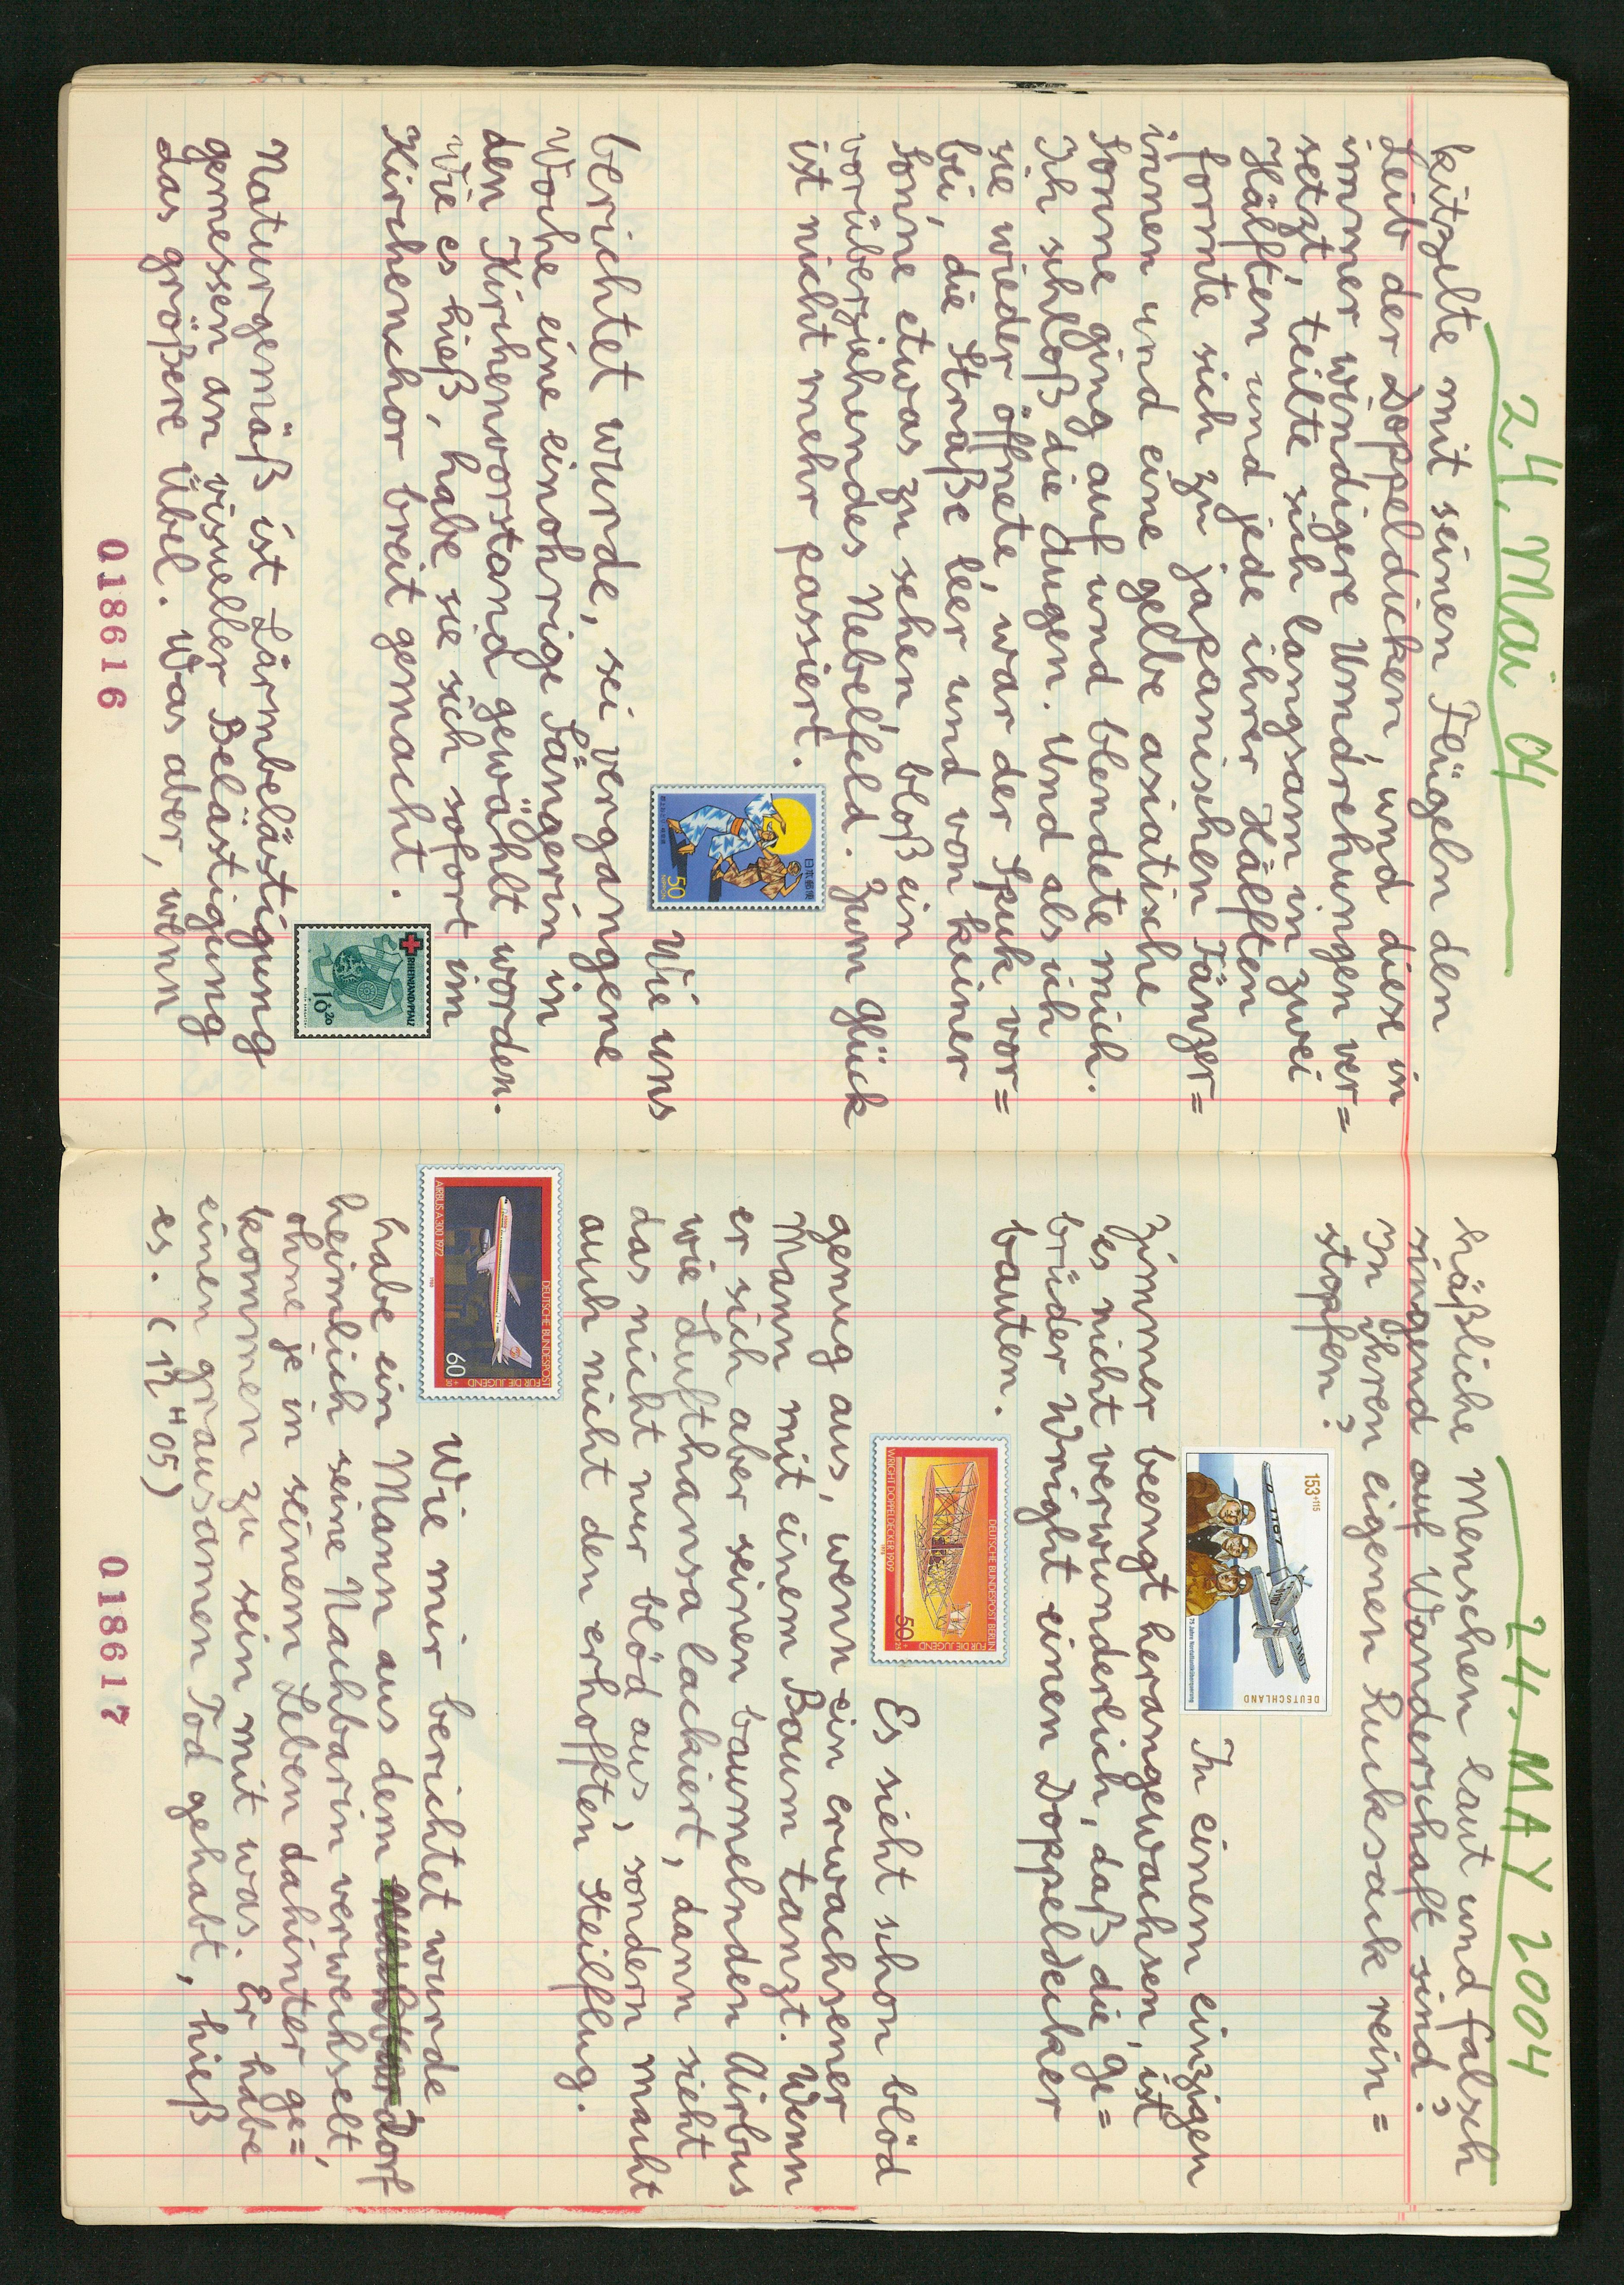 24. Mai 04
kitzelte mit seinen Flügeln den
Leib der Doppeldicken, und diese in
immer windigere Umdrehungen ver=
setzt, teilte sich langsam in zwei
Hälften und jede ihrer Hälften
formte sich zu japanischen Tänzer=
innen und eine gelbe asiatische
Sonne ging auf und blendete mich.
Ich schloß die Augen. Und als ich
sie wieder öffnete, war der Spuk vor=
bei, die Straße leer und von keiner
Sonne etwas zu sehen, bloß ein
vorüberziehendes Nebelfeld. Zum Glück
ist nicht mehr passiert.
日本郵便
50
NIPPON
Wie uns
berichtet wurde, sei vergangene
Woche eine einohrige Sängerin in
den Kirchenvorstand gewählt worden.
Wie es hieß, habe sie sich sofort im
Kirchenchor breit gemacht.
RHEINLAND-PFALZ
10+20
Naturgemäß ist Lärmbelästigung
gemessen an visueller Belästigung
das größere Übel. Was aber, wenn
018616
24. MAY 2004
häßliche Menschen laut und falsch
singend auf Wanderschaft sind?
In ihren eigenen Rucksack rein=
stopfen?
153+115
DEUTSCHLAND
75 Jahre Nordatlantiküberquerung
In einem einzigen
Zimmer beengt herangewachsen, ist
es nicht verwunderlich, daß die Ge=
brüder Wright einen Doppeldecker
bauten.
DEUTSCHE BUNDESPOST BERLIN
FÜR DIE JUGEND
50+25
WRIGHT DOPPELDECKER 1909
Es sieht schon blöd
genug aus, wenn ein erwachsener
Mann mit einem Baum tanzt. Wenn
er sich aber seinen baumelnden Airbus
wie Lufthansa lackiert, dann sieht
das nicht nur blöd aus, sondern macht
auch nicht den erhofften Steilflug.
DEUTSCHE BUNDESPOST
FÜR DIE JUGEND
60+30
AIRBUS A 300 1972
Wie mir berichtet wurde,
habe ein Mann aus dem Nachbardorf
heimlich seine Nachbarin verwechselt,
ohne je in seinem Leben dahinter ge=
kommen zu sein mit was. Er habe
einen grausamen Tod gehabt, hieß
es. (12"05)
018617